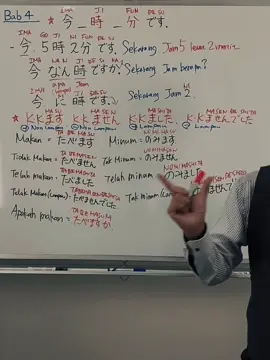 Bab 4
IMA JI FUN DESU
★ 今_時_分です.
IMA GO JI NI FUN DESU
- 今,5時2分です. Sekarang Jam 5 lewat 2 menit.
今 なん時ですか? Sekarang Jam berapa?
今 に時です. Sekarang Jam 2.
★ KKます KKません KKました KKませんでした
Non Lampau Non Lampau Lampau Lampau
Makan = たべます Minum = のみます
Tidak Makan = たべません Tak Minum = のみません
Telah makan = たべました Telah minum = のみました
Tidak Makan (Lampau) = たべませんでした Tak Minum (Lampau)
Apakah makan = たべますか